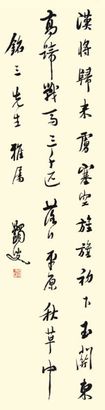 漢將歸來虜塞空旌旗初下玉關東
高蹄戰馬三千匹落日平原秋草中
銘三先生 雅屬